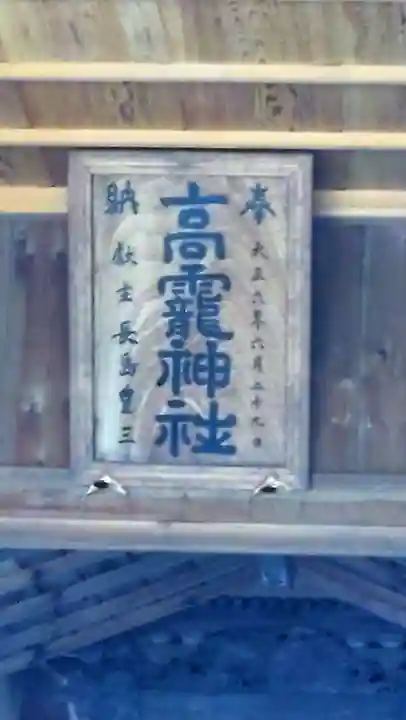 奉
大正六年六月二十九日
高靇神社
納
献主 長島重三